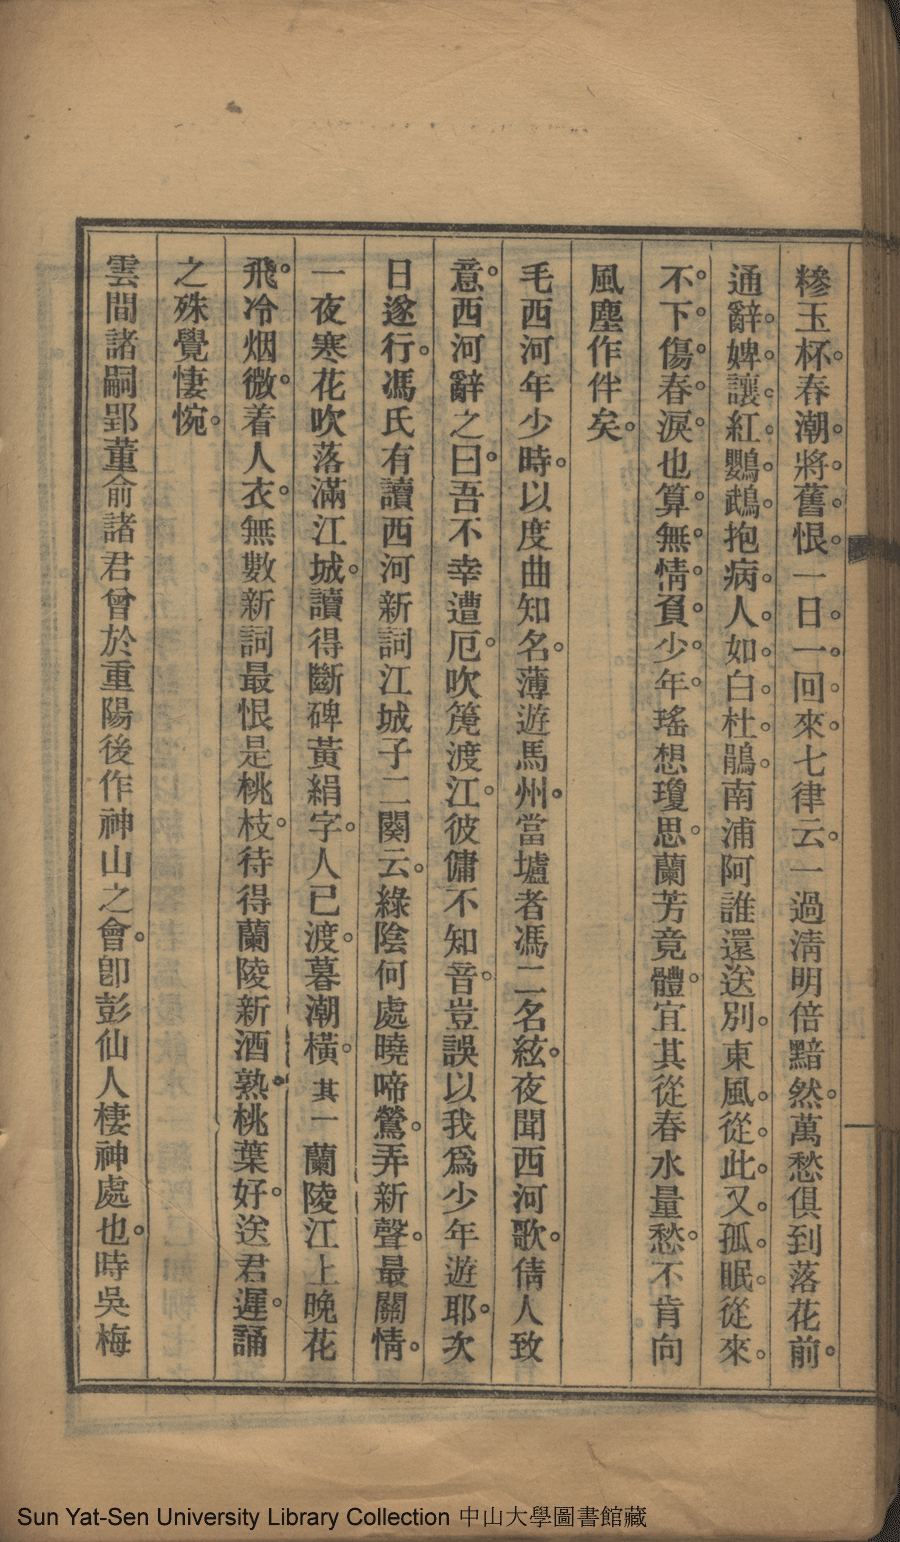 糝玉杯。春潮。將。舊。恨。一日。一。回。來。七律云。一過淸明倍黯然。萬愁俱到落花前。
通辭。婢。讓。紅。鸚。鵡。抱病。人。如。白。杜。鵑。南浦阿誰還送別。東風。從。此。又。孤。眠。從來。
不。下。傷。春。淚。也算。無。情。負。少。年。瑤想瓊思。蘭芳竟體。宜其從春水量愁。不肯向
風塵作伴矣。
毛西河年少時。以度曲知名。薄遊馬州。當壚者馮二名絃。夜聞西河歌。倩人致
意。西河辭之曰。吾不幸遭厄。吹篪渡江。彼傭不知音。豈誤以我爲少年遊耶。次
日遂行。馮氏有讀西河新詞江城子二闋云。綠陰何處曉啼鶯。弄新聲。最關情。
一夜寒花吹落滿江城。讀得斷碑黃絹字。人已渡。暮潮橫。其一蘭陵江上晚花
飛。冷烟微。着人衣。無數新詞最恨是桃枝。待得蘭陵新酒熟。桃葉好。送君遲。誦
之殊覺悽惋。
雲間諸嗣郢董俞諸君曾於重陽後作神山之會。卽彭仙人棲神處也。時吳梅
Sun Yat-Sen University Library Collection 中山大學圖書館藏